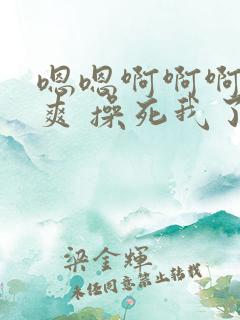 嗯嗯啊啊啊
爽 操死我了
梁金辉
未经同意禁止转载